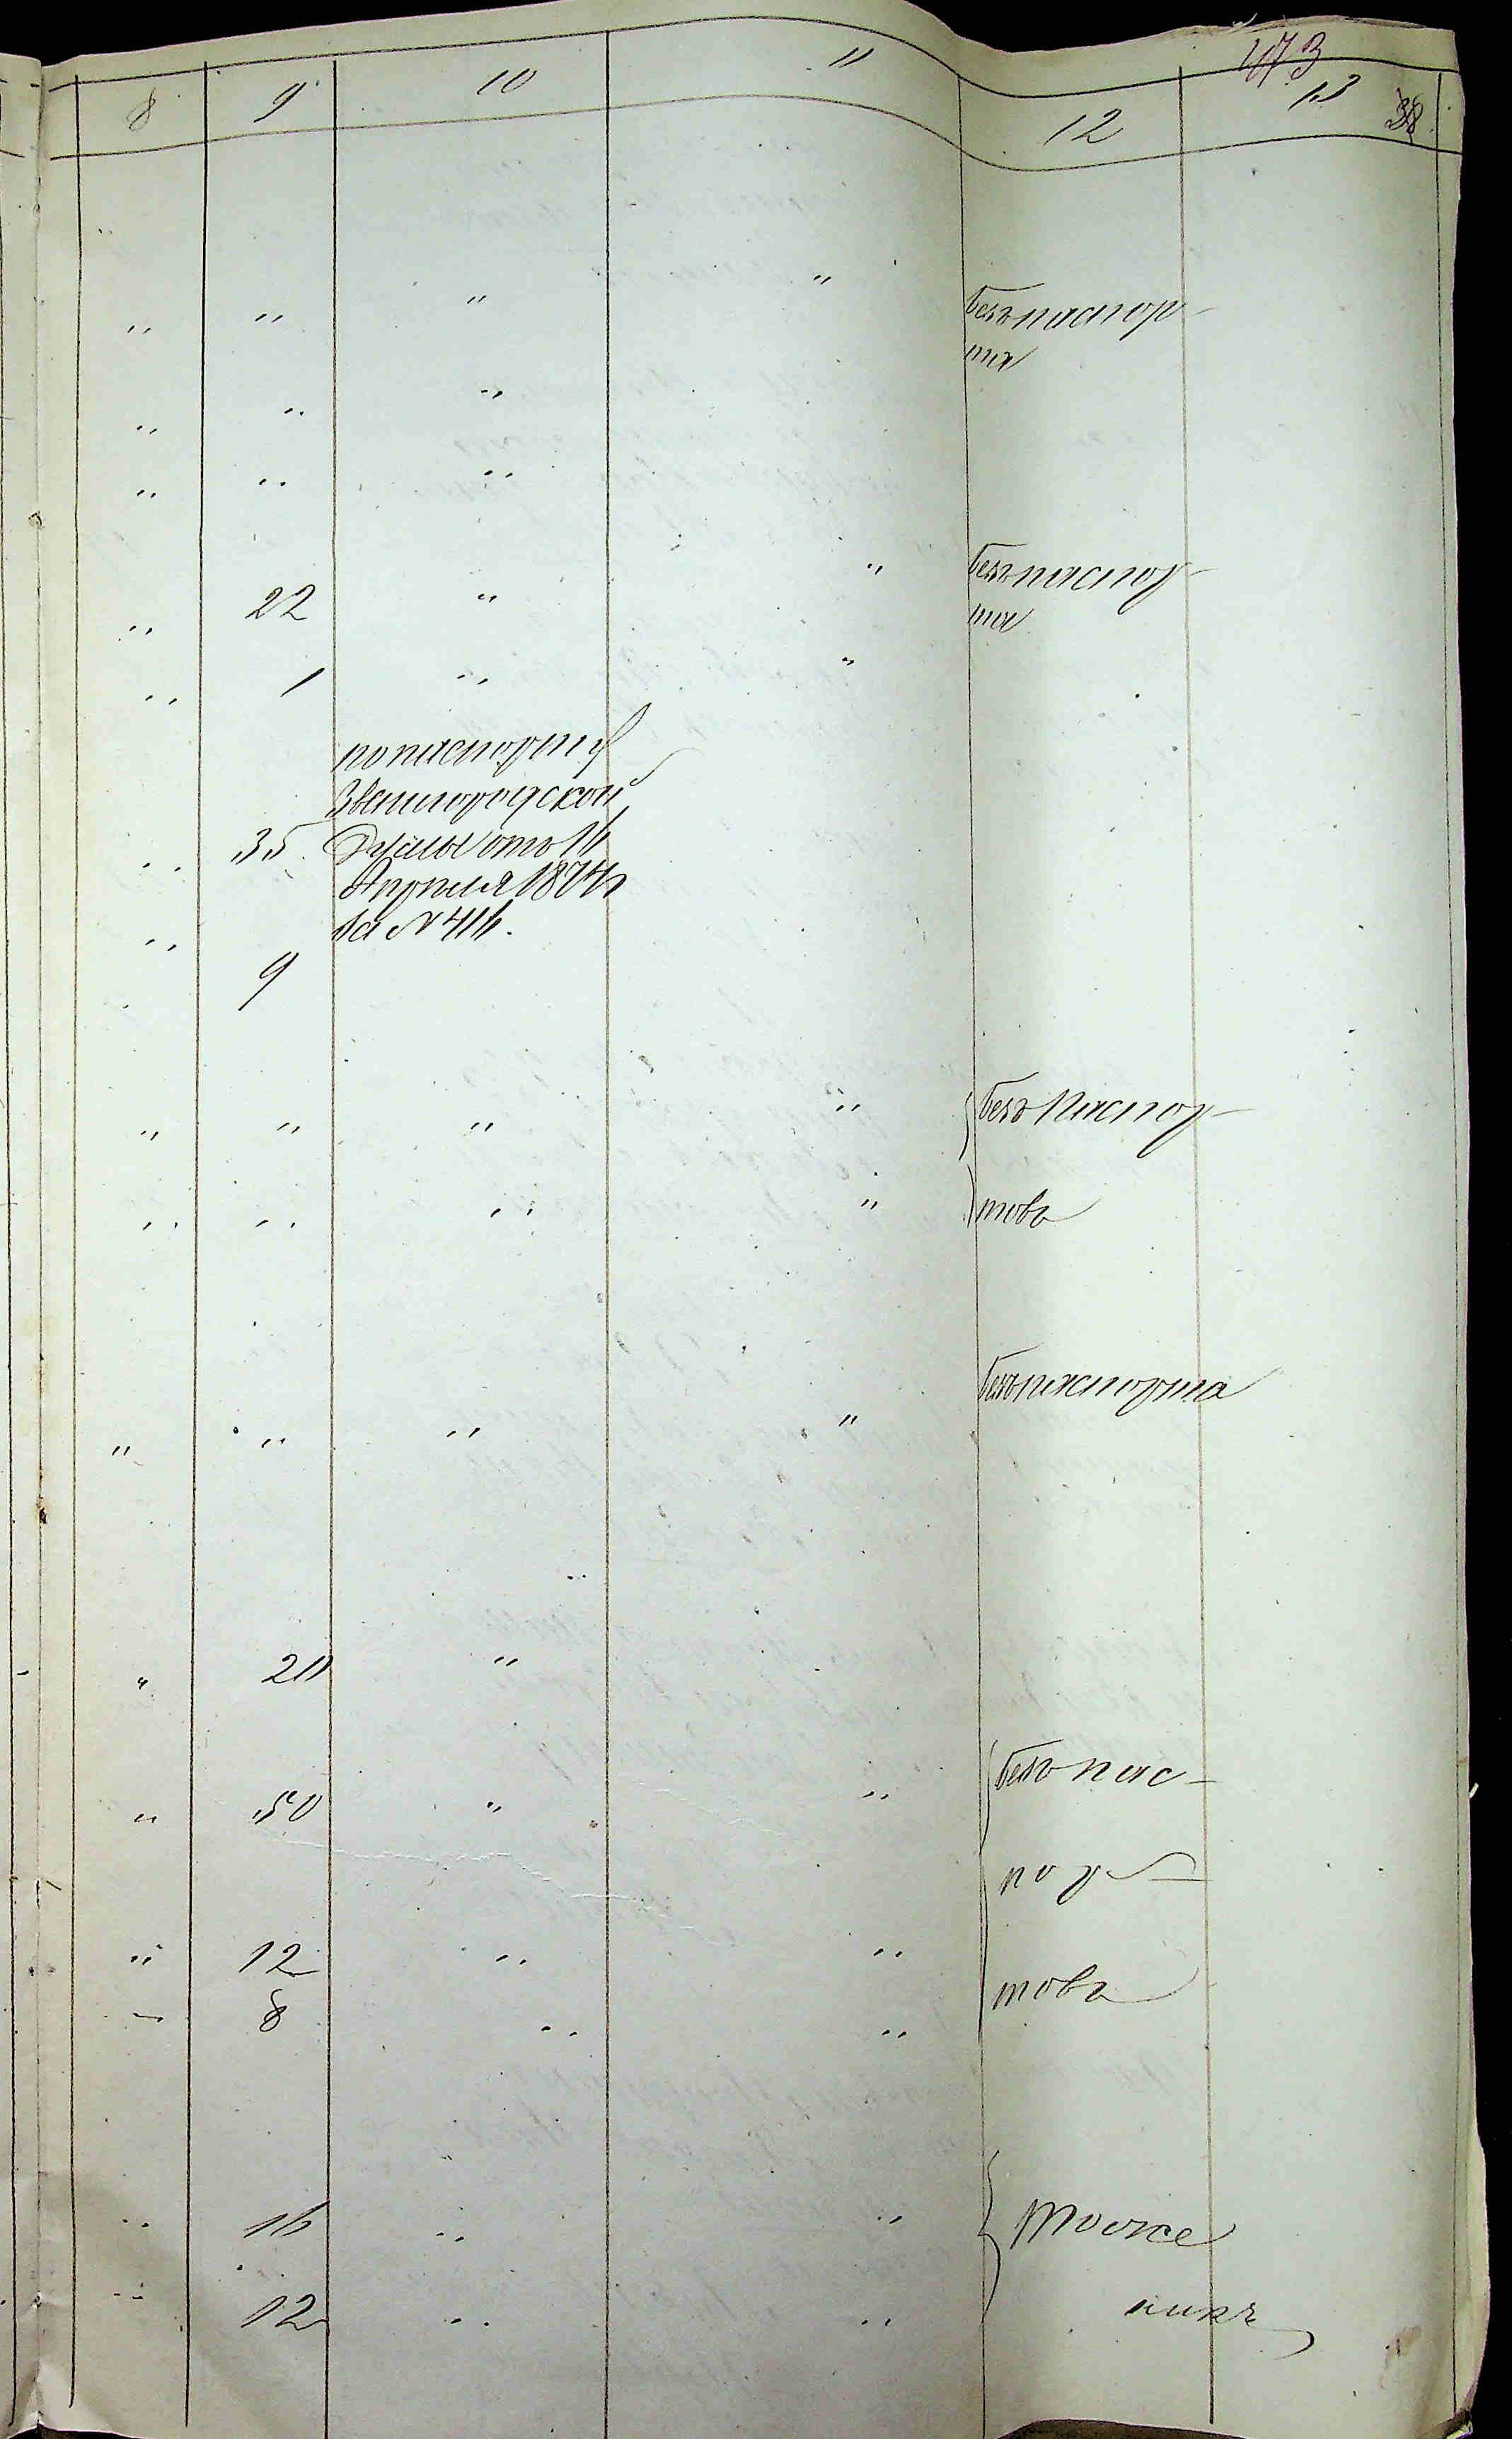 473
8 9 10 11 12 13
" " " " безъ паспор-
та
" " "
" " "
" 22 " " безъ паспор-
та
" 1 " "
по паспорту
Звенигородской
" 35 Думы отъ 16
Апреля 1874 г
за № 416.
" 9
" " " " безъ паспор-
" " " " товъ
безъ паспорта
" " " "
" 20 "
безъ пас-
" 50 " "
пор-
" 12 " "
товъ
" 8 " "
" 16 " " тоже
" 12 " "